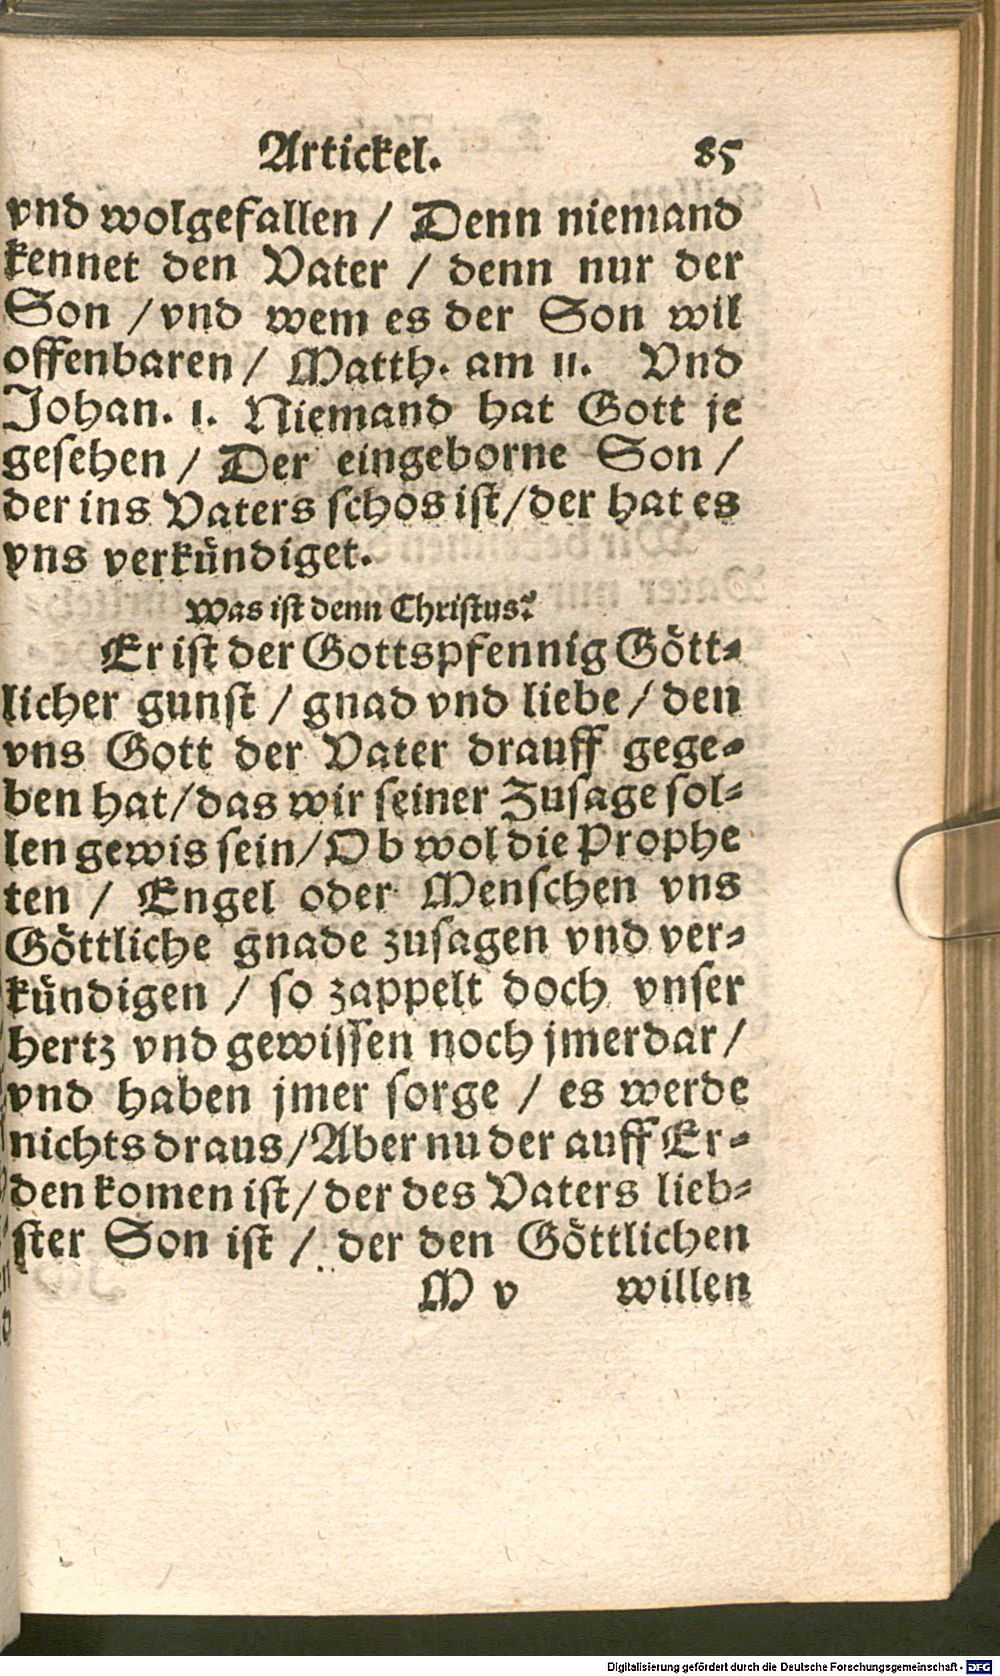 Artickel. 85
vnd wolgefallen / Denn niemand
kennet den Vater / denn nur der
Son / vnd wem es der Son wil
offenbaren / Matth. am 11. Vnd
Johan. 1. Niemand hat Gott je
gesehen / Der eingeborne Son /
der ins Vaters schos ist / der hat es
vns verkündiget.
Was ist denn Christus?
Er ist der Gottspfennig Gött-
licher gunst / gnad vnd liebe / den
vns Gott der Vater drauff gege-
ben hat / das wir seiner Zusage sol-
len gewis sein / Ob wol die Prophe
ten / Engel oder Menschen vns
Göttliche gnade zusagen vnd ver-
kündigen / so zappelt doch vnser
hertz vnd gewissen noch jmerdar /
vnd haben jmer sorge / es werde
nichts draus / Aber nu der auff Er-
den komen ist / der des Vaters lieb-
ster Son ist / der den Göttlichen
M v willen
Digitalisierung gefördert durch die Deutsche Forschungsgemeinschaft - DFG